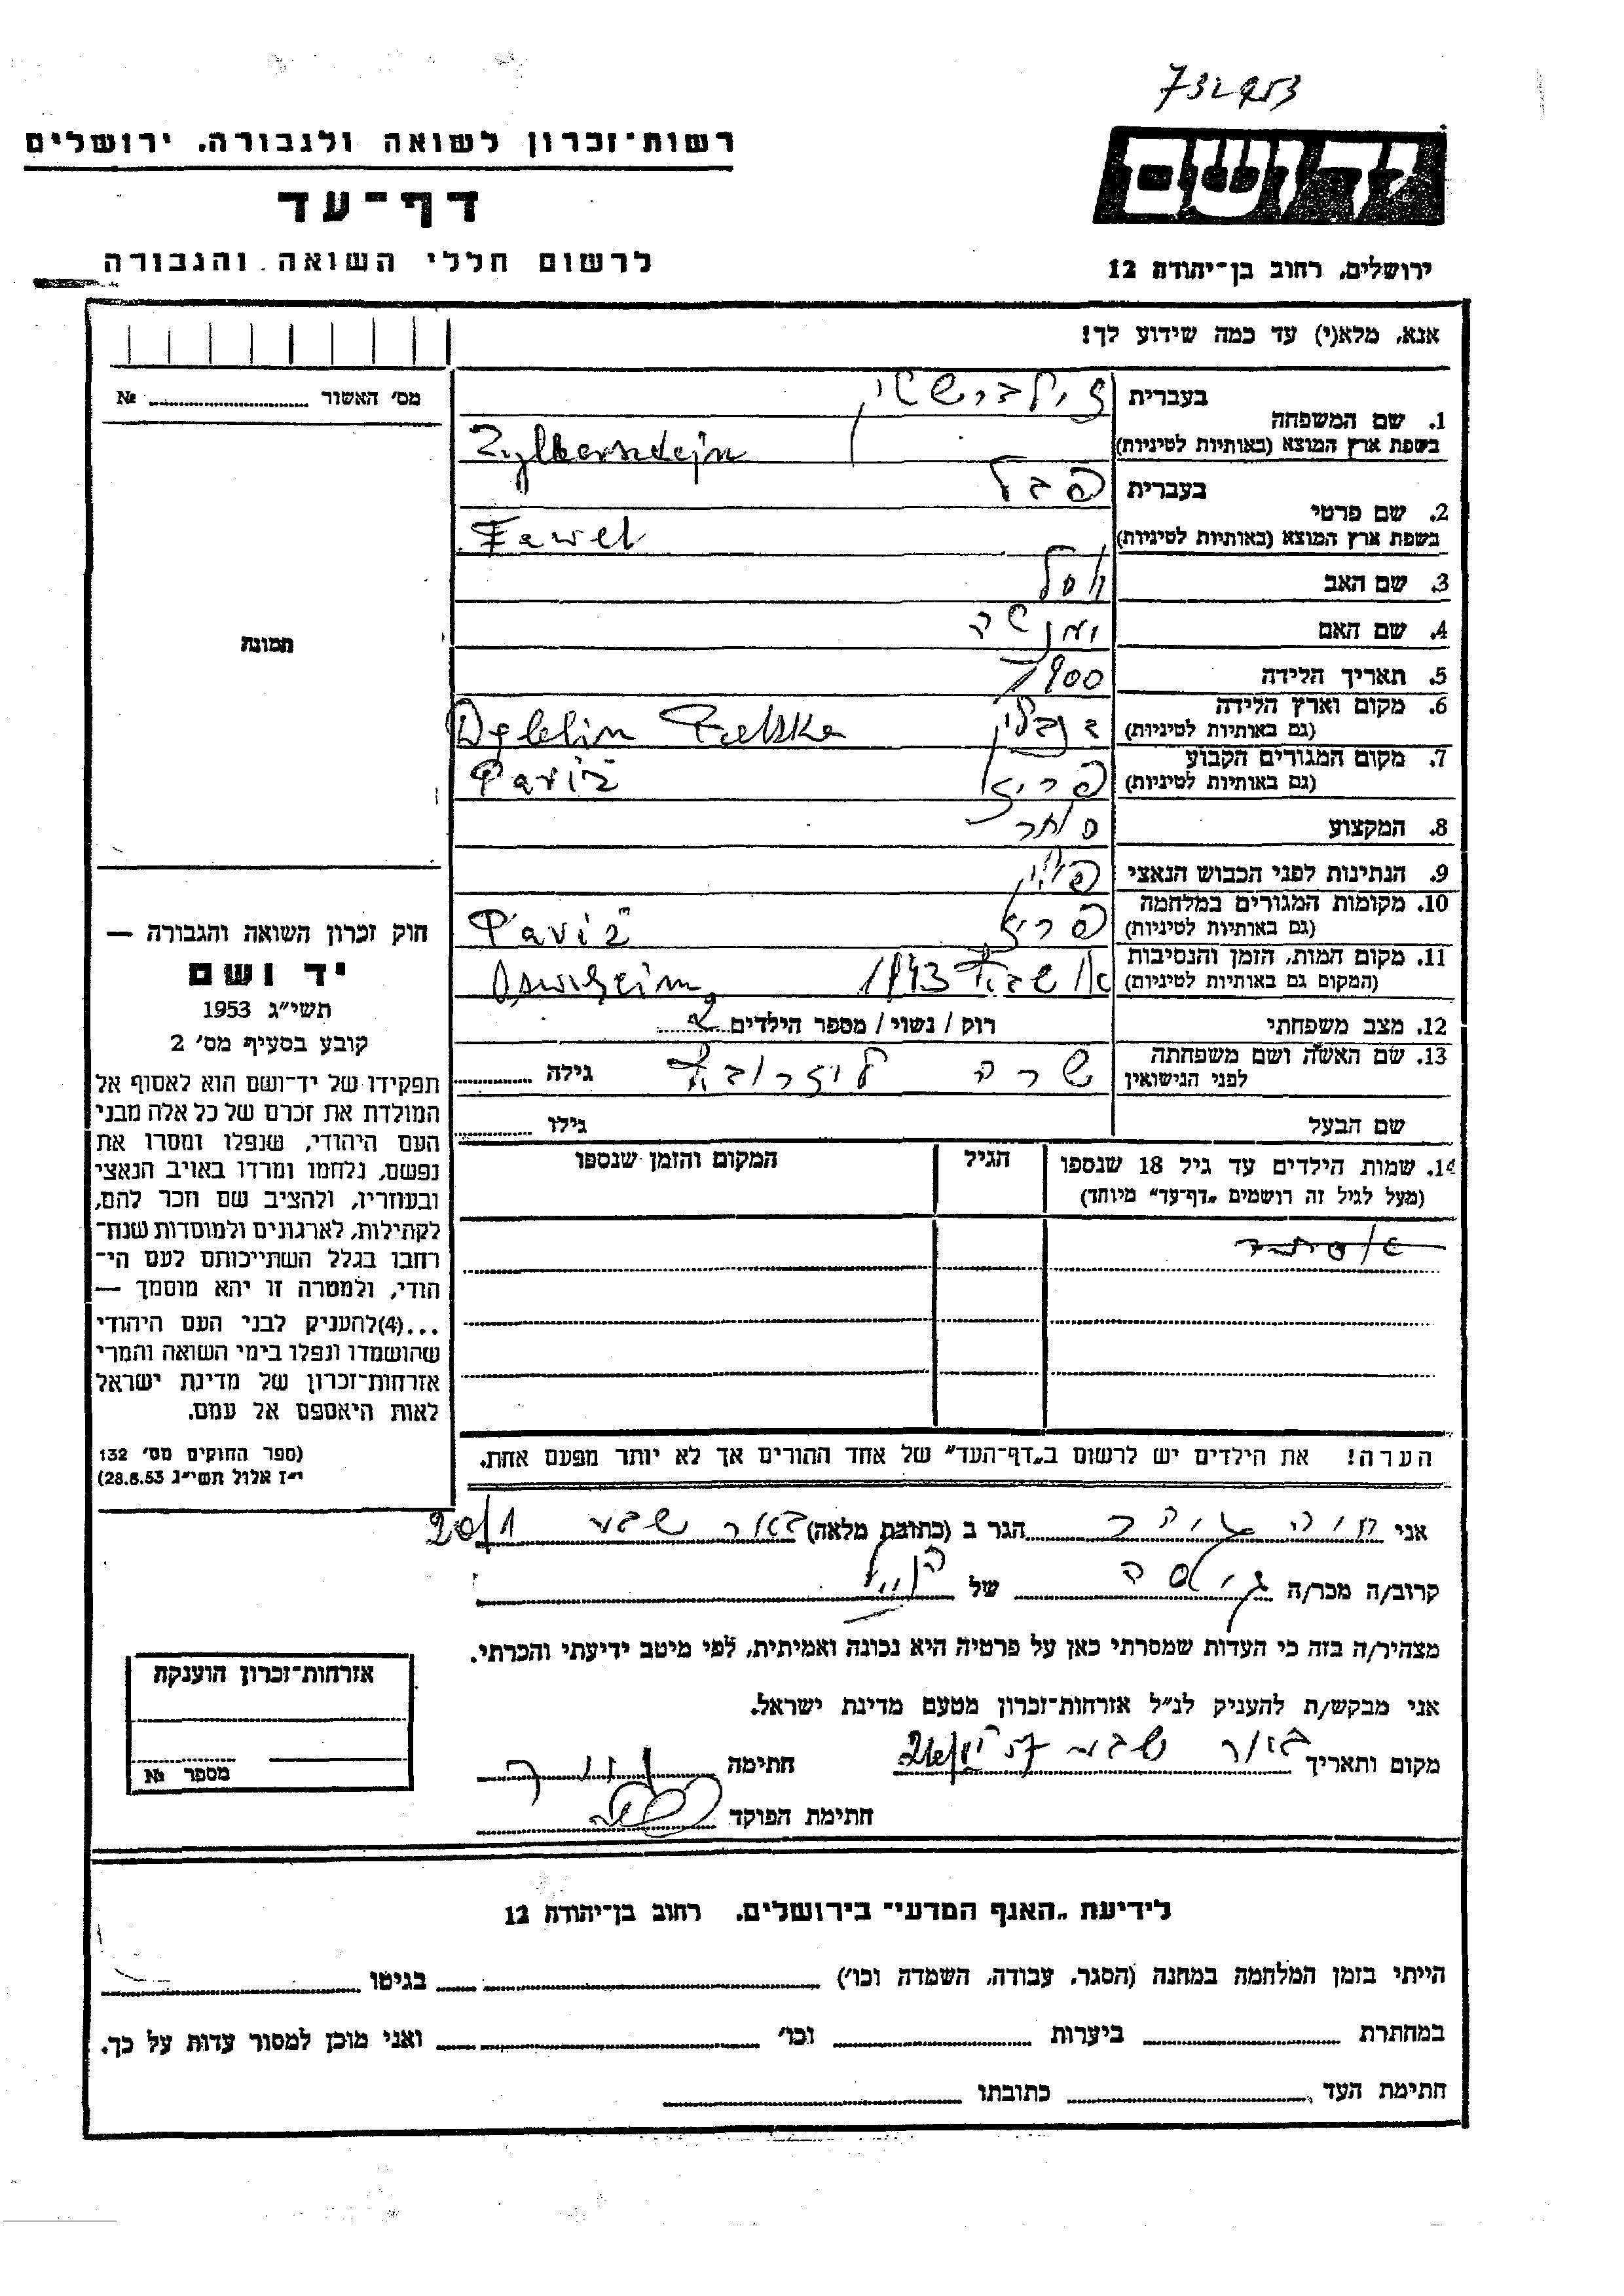 732953
רשות־זכרון לשואה ולגבורה, ירושלים
דף־עד
לרשום חללי השואה והגבורה
ידושם
ירושלים, רחוב בן־יהודה 12
אנא, מלא(י) עד כמה שידוע לך!
מס׳ האשור № 
1. שם המשפחה בעברית זילברשטיין
בשפת ארץ המוצא (באותיות לטיניות) Zylbersztejn
2. שם פרטי בעברית פבל
בשפת ארץ המוצא (באותיות לטיניות) Fawel
3. שם האב יוסל
4. שם האם
5. תאריך הלידה 1900
6. מקום וארץ הלידה
(גם באותיות לטיניות) דנבלין Deblin Polska
7. מקום המגורים הקבוע
(גם באותיות לטיניות) פריז Pariż
8. המקצוע סוחר
9. הנתינות לפני הכבוש הנאצי פולין
10. מקומות המגורים במלחמה
(גם באותיות לטיניות) פריז Pariż
11. מקום המות, הזמן והנסיבות
(המקום גם באותיות לטיניות) אושביץ 1943
12. מצב משפחתי רווק / נשוי / מספר הילדים 2
13. שם האשה ושם משפחתה
לפני הנישואין שרה גילה
שם הבעל גילו
14. שמות הילדים עד גיל 18 שנספו הגיל המקום והזמן שנספו
(מעל לגיל זה רושמים „דף־עד״ מיוחד)
הערה! את הילדים יש לרשום ב„דף־העד״ של אחד ההורים אך לא יותר מפעם אחת.
תמונה
חוק זכרון השואה והגבורה —
יד ושם
תשי״ג 1953
קובע בסעיף מס׳ 2
תפקידו של יד־ושם הוא לאסוף אל
המולדת את זכרם של כל אלה מבני
העם היהודי, שנפלו ומסרו את
נפשם, נלחמו ומרדו באויב הנאצי
ובעוזריו, ולהציב שם וזכר להם,
לקהילות, לארגונים ולמוסדות שנח־
רבו בגלל השתייכותם לעם הי־
הודי, ולמטרה זו יהא מוסמך —
...(4)להעניק לבני העם היהודי
שהושמדו ונפלו בימי השואה והמרי
אזרחות־זכרון של מדינת ישראל
לאות היאספם אל עמם.
(ספר החוקים מס׳ 132
י״ז אלול תשי״ג 28.8.53)
אני חוה הגר ב (כתובת מלאה) באר שבע
קרוב/ה מכר/ה גיסה של הנ״ל
מצהיר/ה בזה כי העדות שמסרתי כאן על פרטיה היא נכונה ואמיתית, לפי מיטב ידיעתי והכרתי.
אני מבקש/ת להעניק לנ״ל אזרחות־זכרון מטעם מדינת ישראל.
מקום ותאריך באר שבע חתימה
חתימת הפוקד
אזרחות־זכרון הוענקה
מספר №
לידיעת „האגף המדעי״ בירושלים, רחוב בן־יהודה 12
הייתי בזמן המלחמה במחנה (הסגר, עבודה, השמדה וכו׳) בגיטו
במחתרת ביערות וכו׳ ואני מוכן למסור עדות על כך.
חתימת העד כתובתו